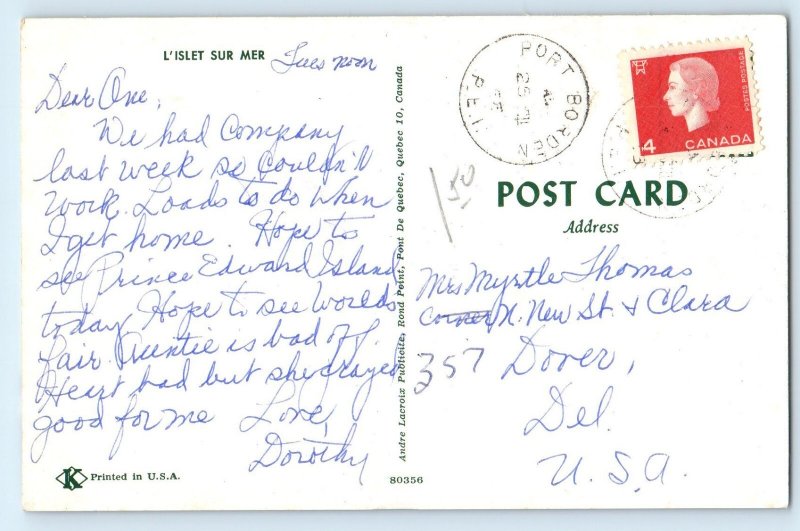 L'ISLET SUR MER
Tues noon
Dear One,
We had Company
last week so couldn't
work. Loads to do when
I get home. Hope to
see Prince Edward Island
today. Hope to see Worlds
Fair. Auntie is bad off.
Heart bad but she prayed
good for me Love,
Dorothy
K Printed in U.S.A.
Andre Lacroix Publicite, Rond Point, Pont De Quebec, Quebec 10, Canada
80356
PORT BORDEN
P.E.I.
4
CANADA
POSTES POSTAGE
1 50
POST CARD
Address
Mrs Myrtle Thomas
Corner N. New St. & Clara
357 Dover,
Del.
U.S.A.